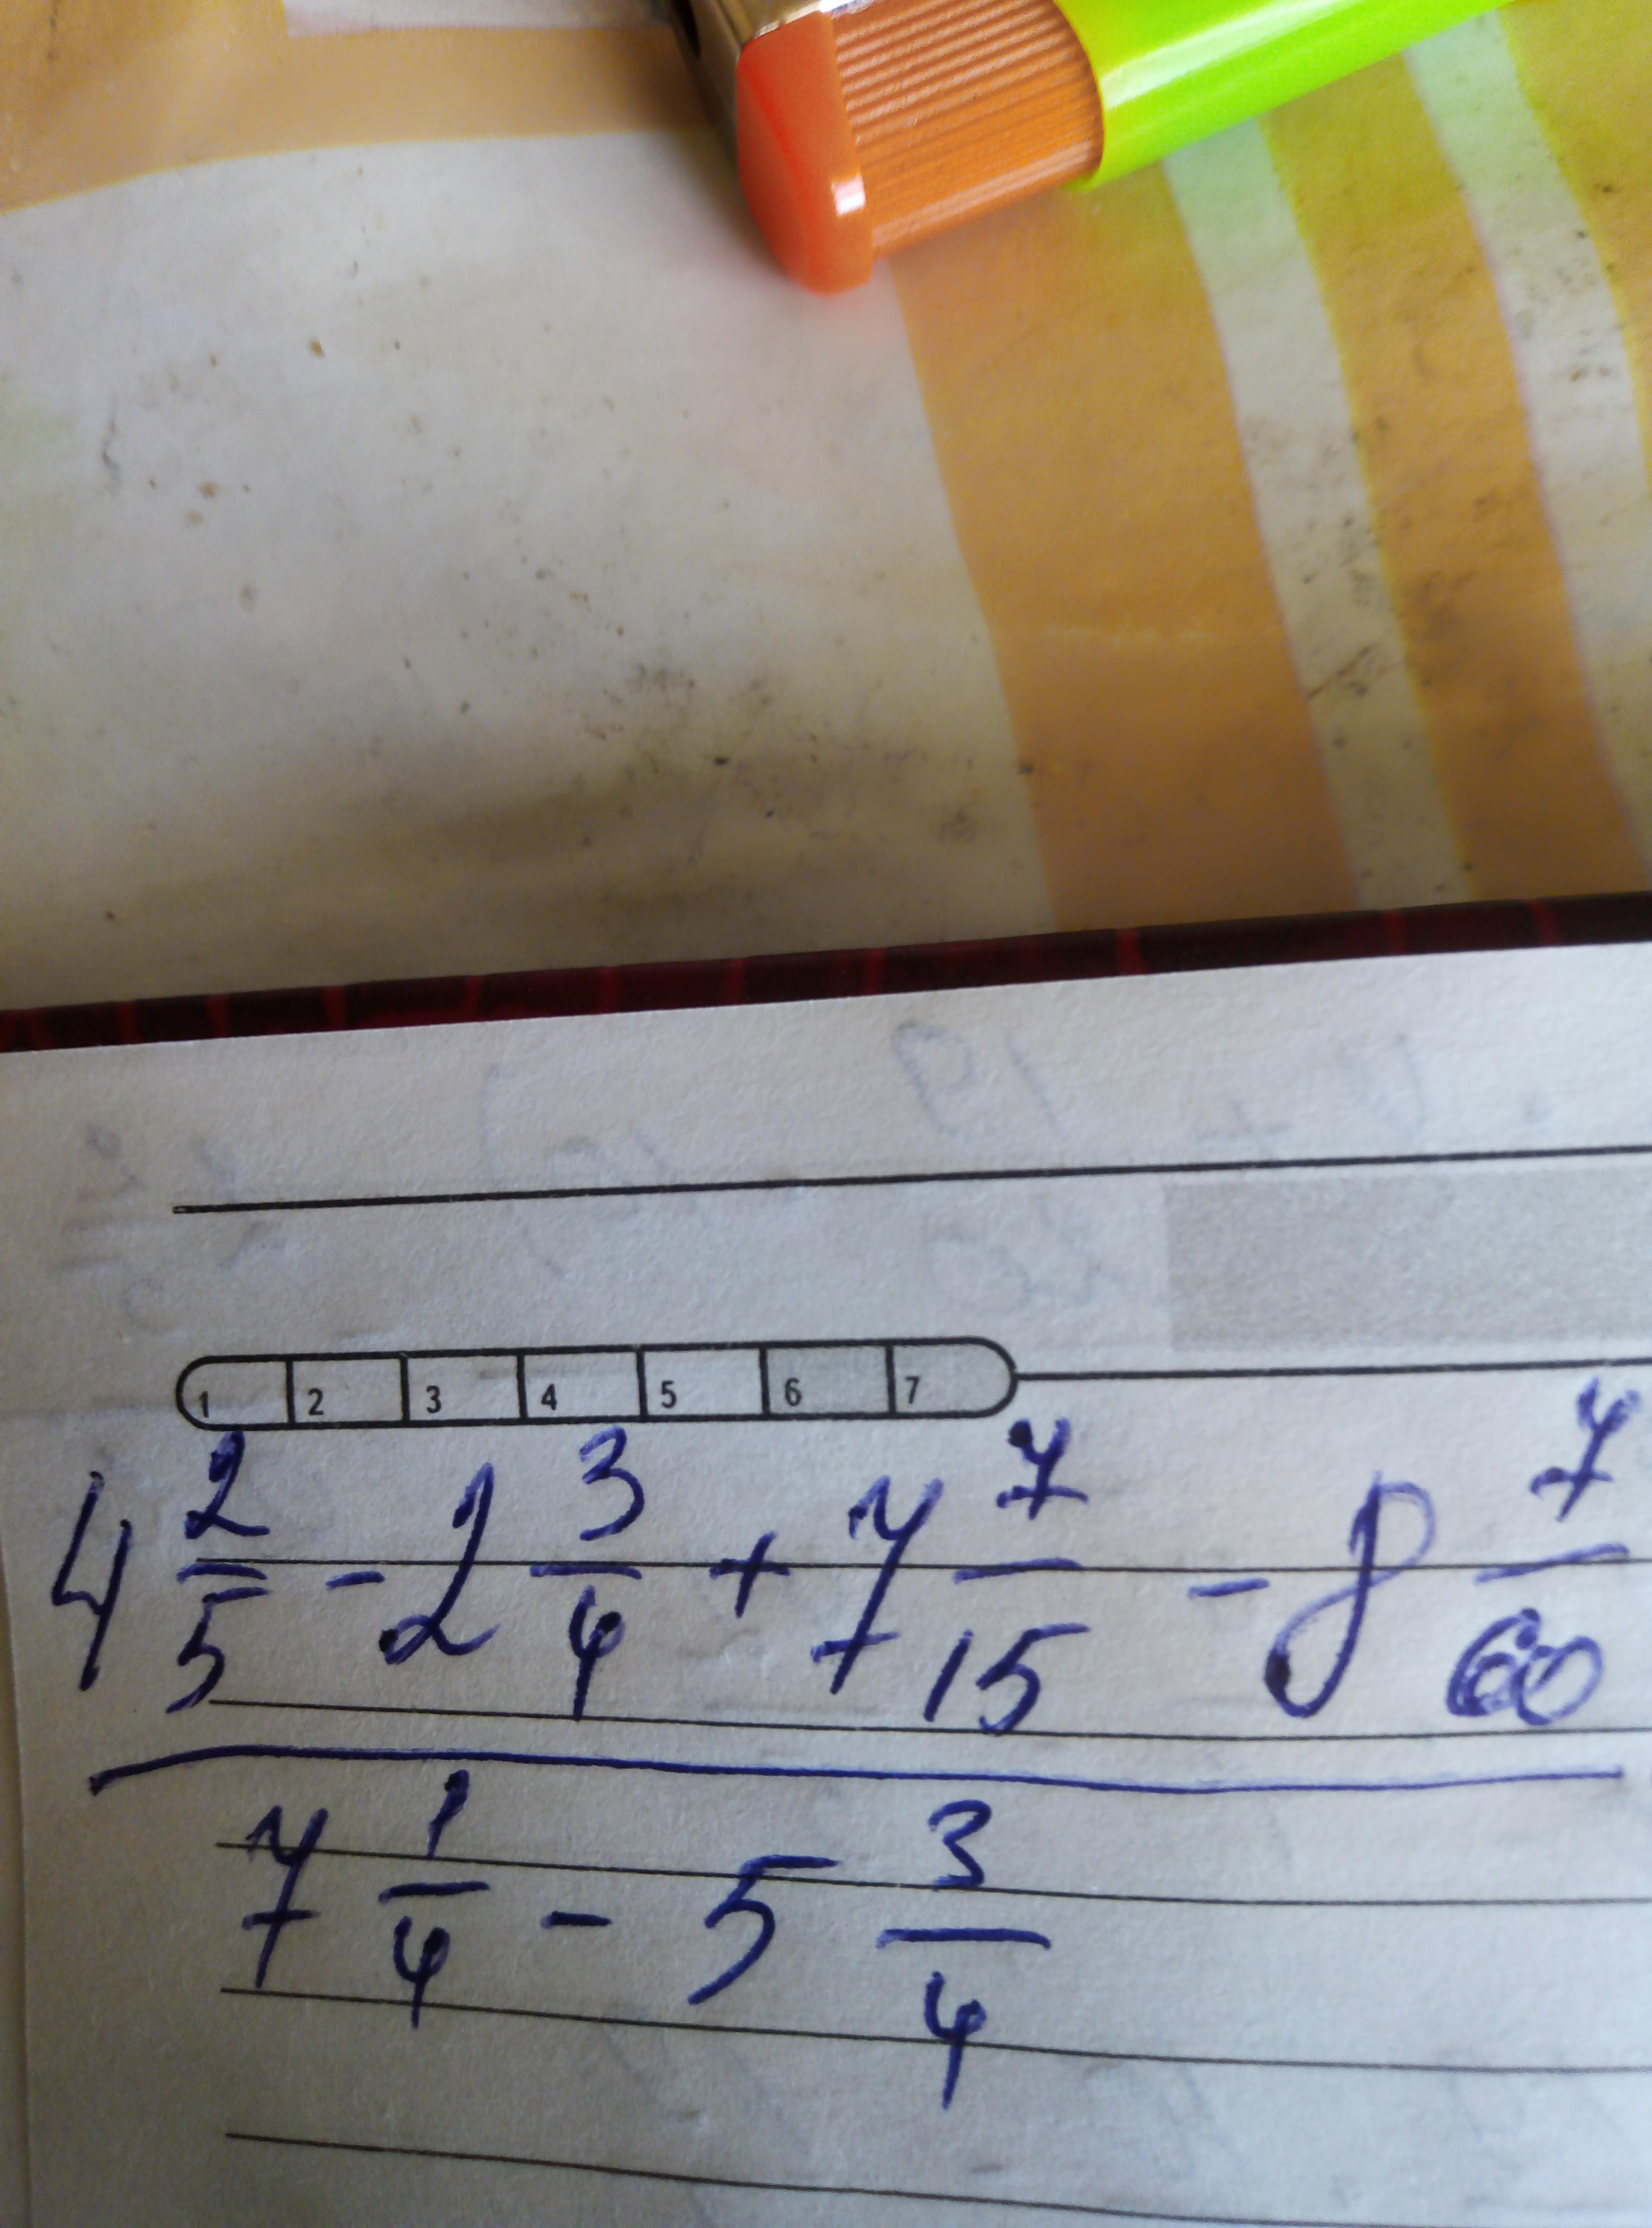 1 2 3 4 5 6 7
4 2/5 - 2 3/4 + 7 7/15 - 8 7/60
7 1/4 - 5 3/4